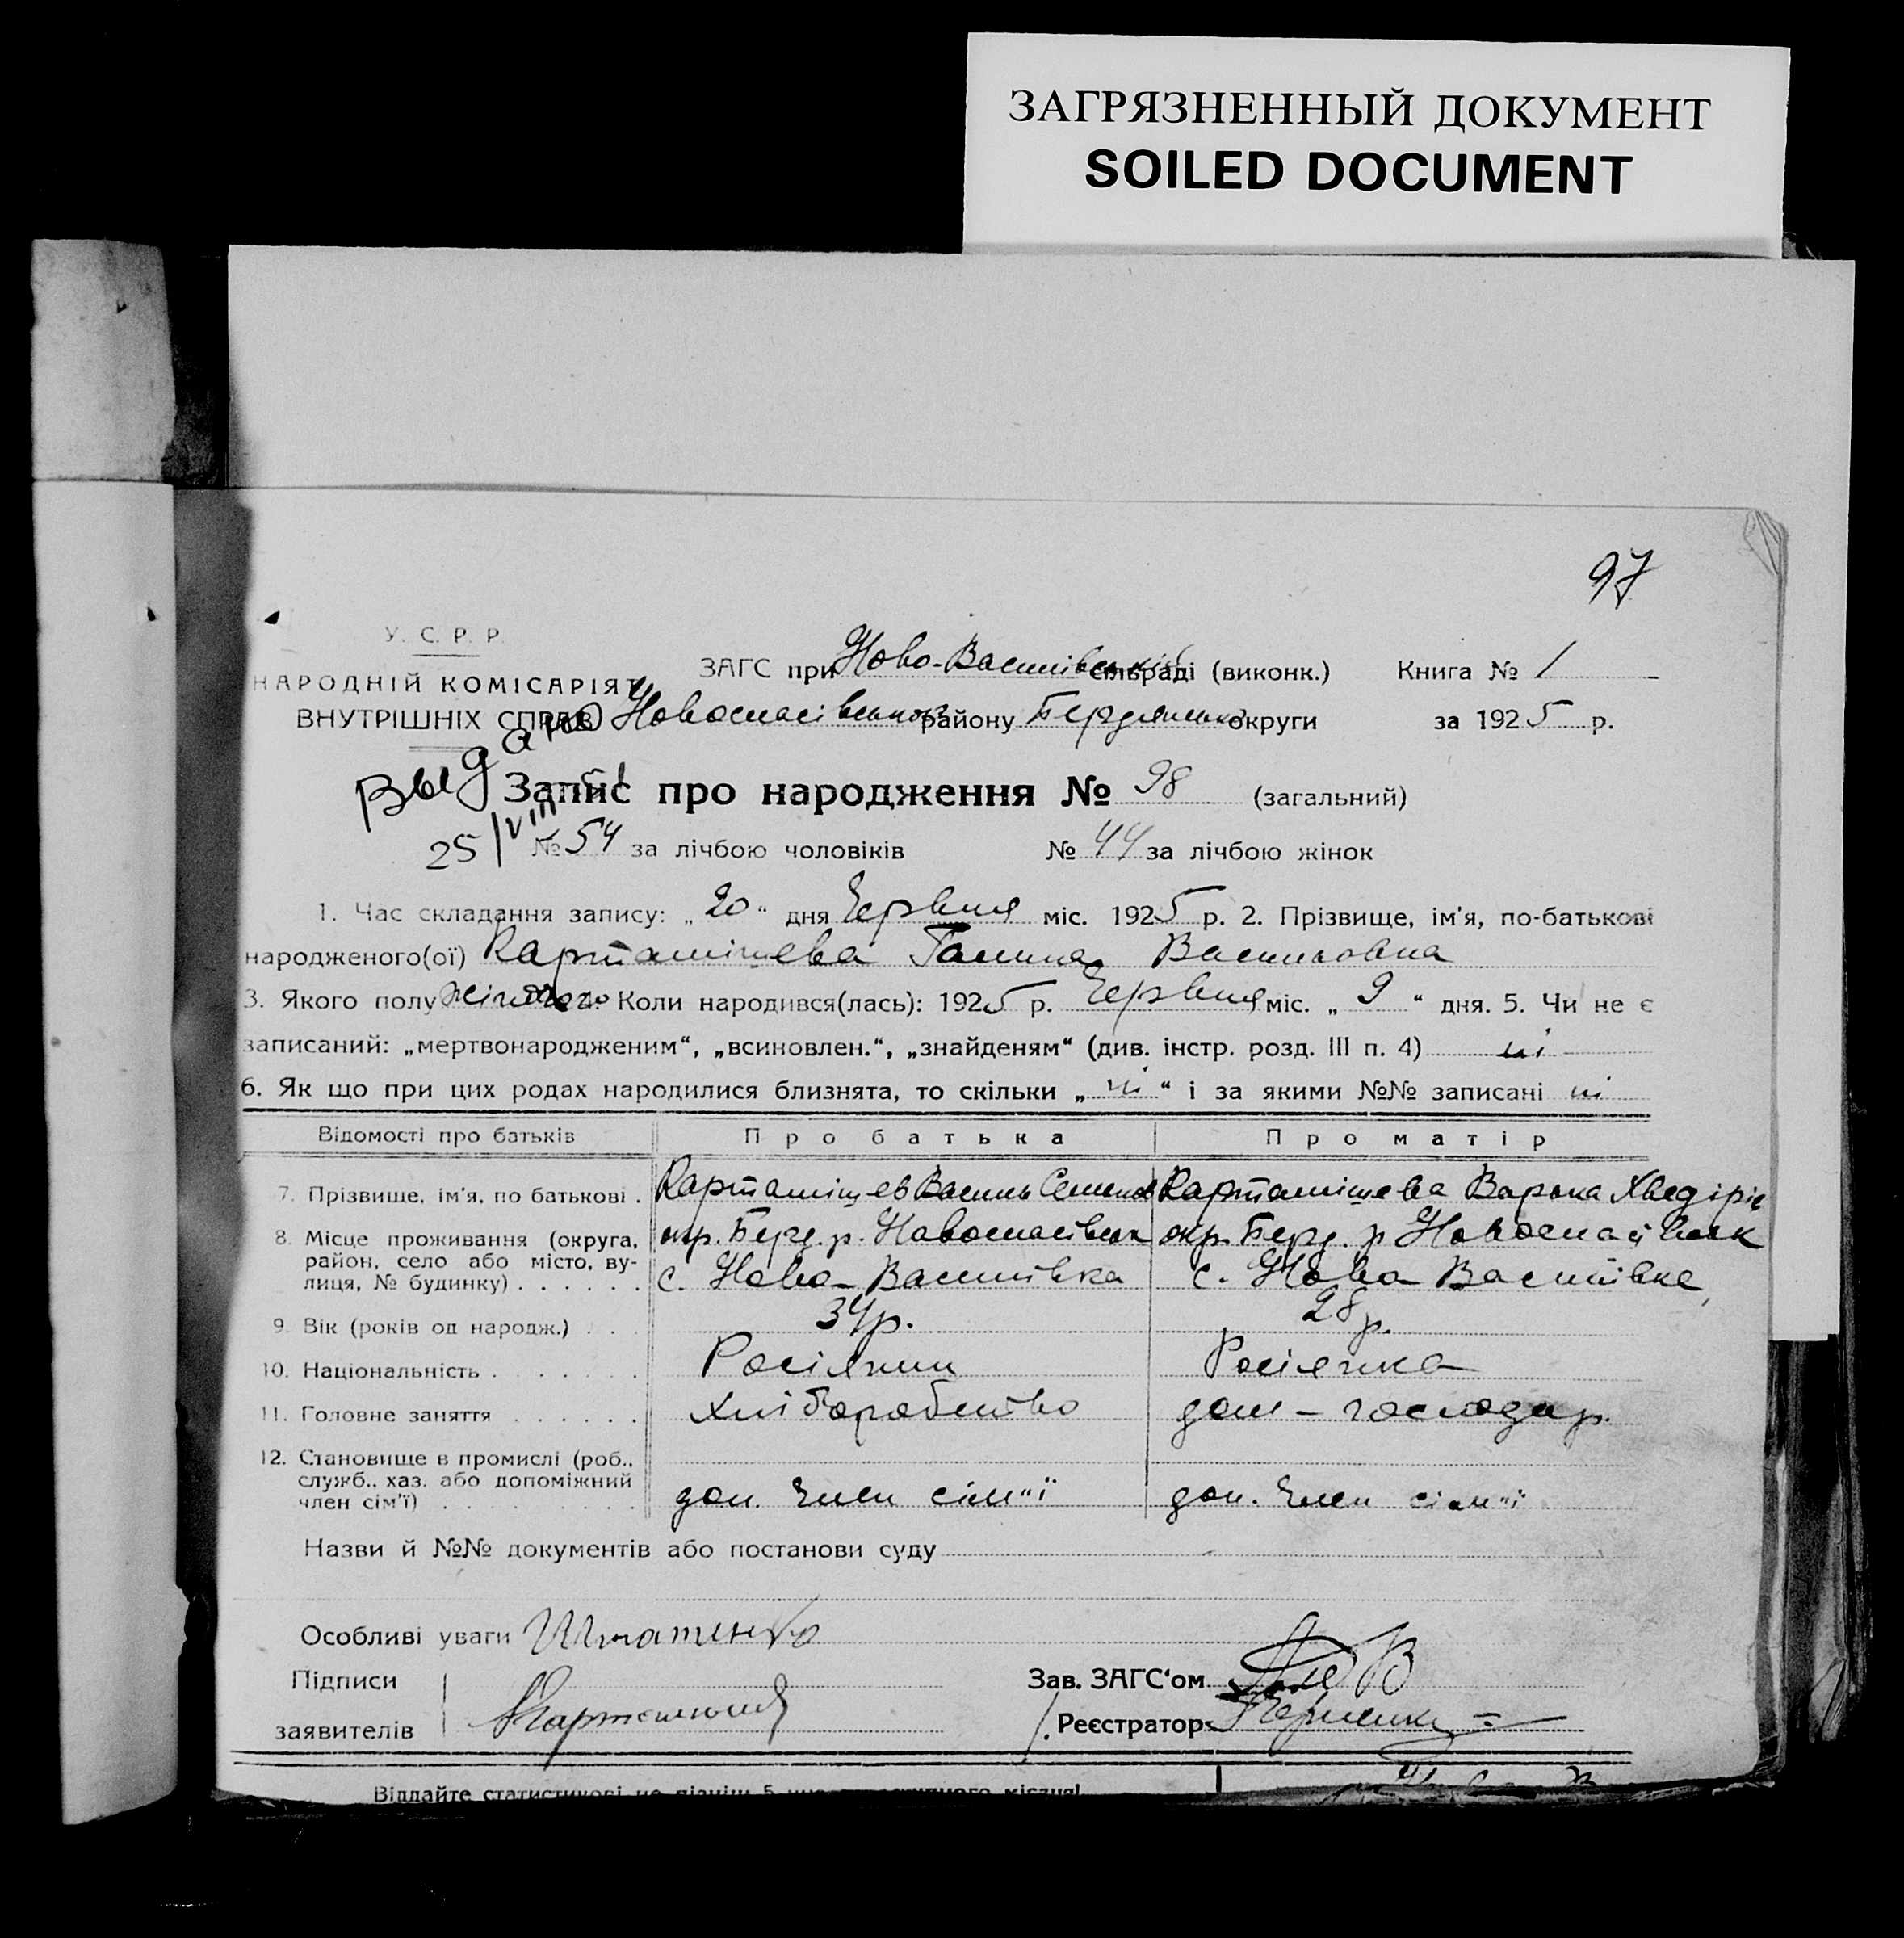 ЗАГРЯЗНЕННЫЙ ДОКУМЕНТ
SOILED DOCUMENT
97
У. С. Р. Р.
НАРОДНІЙ КОМІСАРІЯТ
ВНУТРІШНІХ СПРАВ
ЗАГС при Ново-Василівській сільраді (виконк.) Книга № 1
Новоспасівського району Бердянської округи за 1925 р.
Выдано
25/VIII 51
Запис про народження № 98 (загальний)
№ 54 за лічбою чоловіків № 44 за лічбою жінок
1. Час складання запису: „20“ дня Червня міс. 1925 р. 2. Прізвище, ім'я, по-батькові
народженого(ої) Карташішева Галина Васильовна
3. Якого полу жіночого 4. Коли народився(лась): 1925 р. Червня міс. „9“ дня. 5. Чи не є
записаний: „мертвонародженим“, „всиновлен.“, „знайденям“ (див. інстр. розд. III п. 4) ні
6. Як що при цих родах народилися близнята, то скільки „ні“ і за якими №№ записані ні
Відомості про батьків Про батька Про матір
7. Прізвище, ім'я, по батькові . Карташішев Василь Семенов Карташішева Варька Хведірів
8. Місце проживання (округа, район, село або місто, вулиця, № будинку) . . . . . . окр. Берд. р. Новоспасівськ окр. Берд. р Новоспасівськ
с. Ново-Василівка с. Ново Василівка
9. Вік (років од народж.) . . . 34 р. 28 р.
10. Національність . . . . . . . Росіянин Росіянка
11. Головне заняття . . . . . . Хліборобство дом-господар.
12. Становище в промислі (роб.,
служб., хаз. або допоміжний
член сім'ї) . . . . . . . . . доп. член сім"ї доп. член сім"ї
Назви й №№ документів або постанови суду
Особливі уваги
Підписи
заявителів
Зав. ЗАГС'ом
Реєстратор
Віддайте статистикові не пізніш 5 місяця!